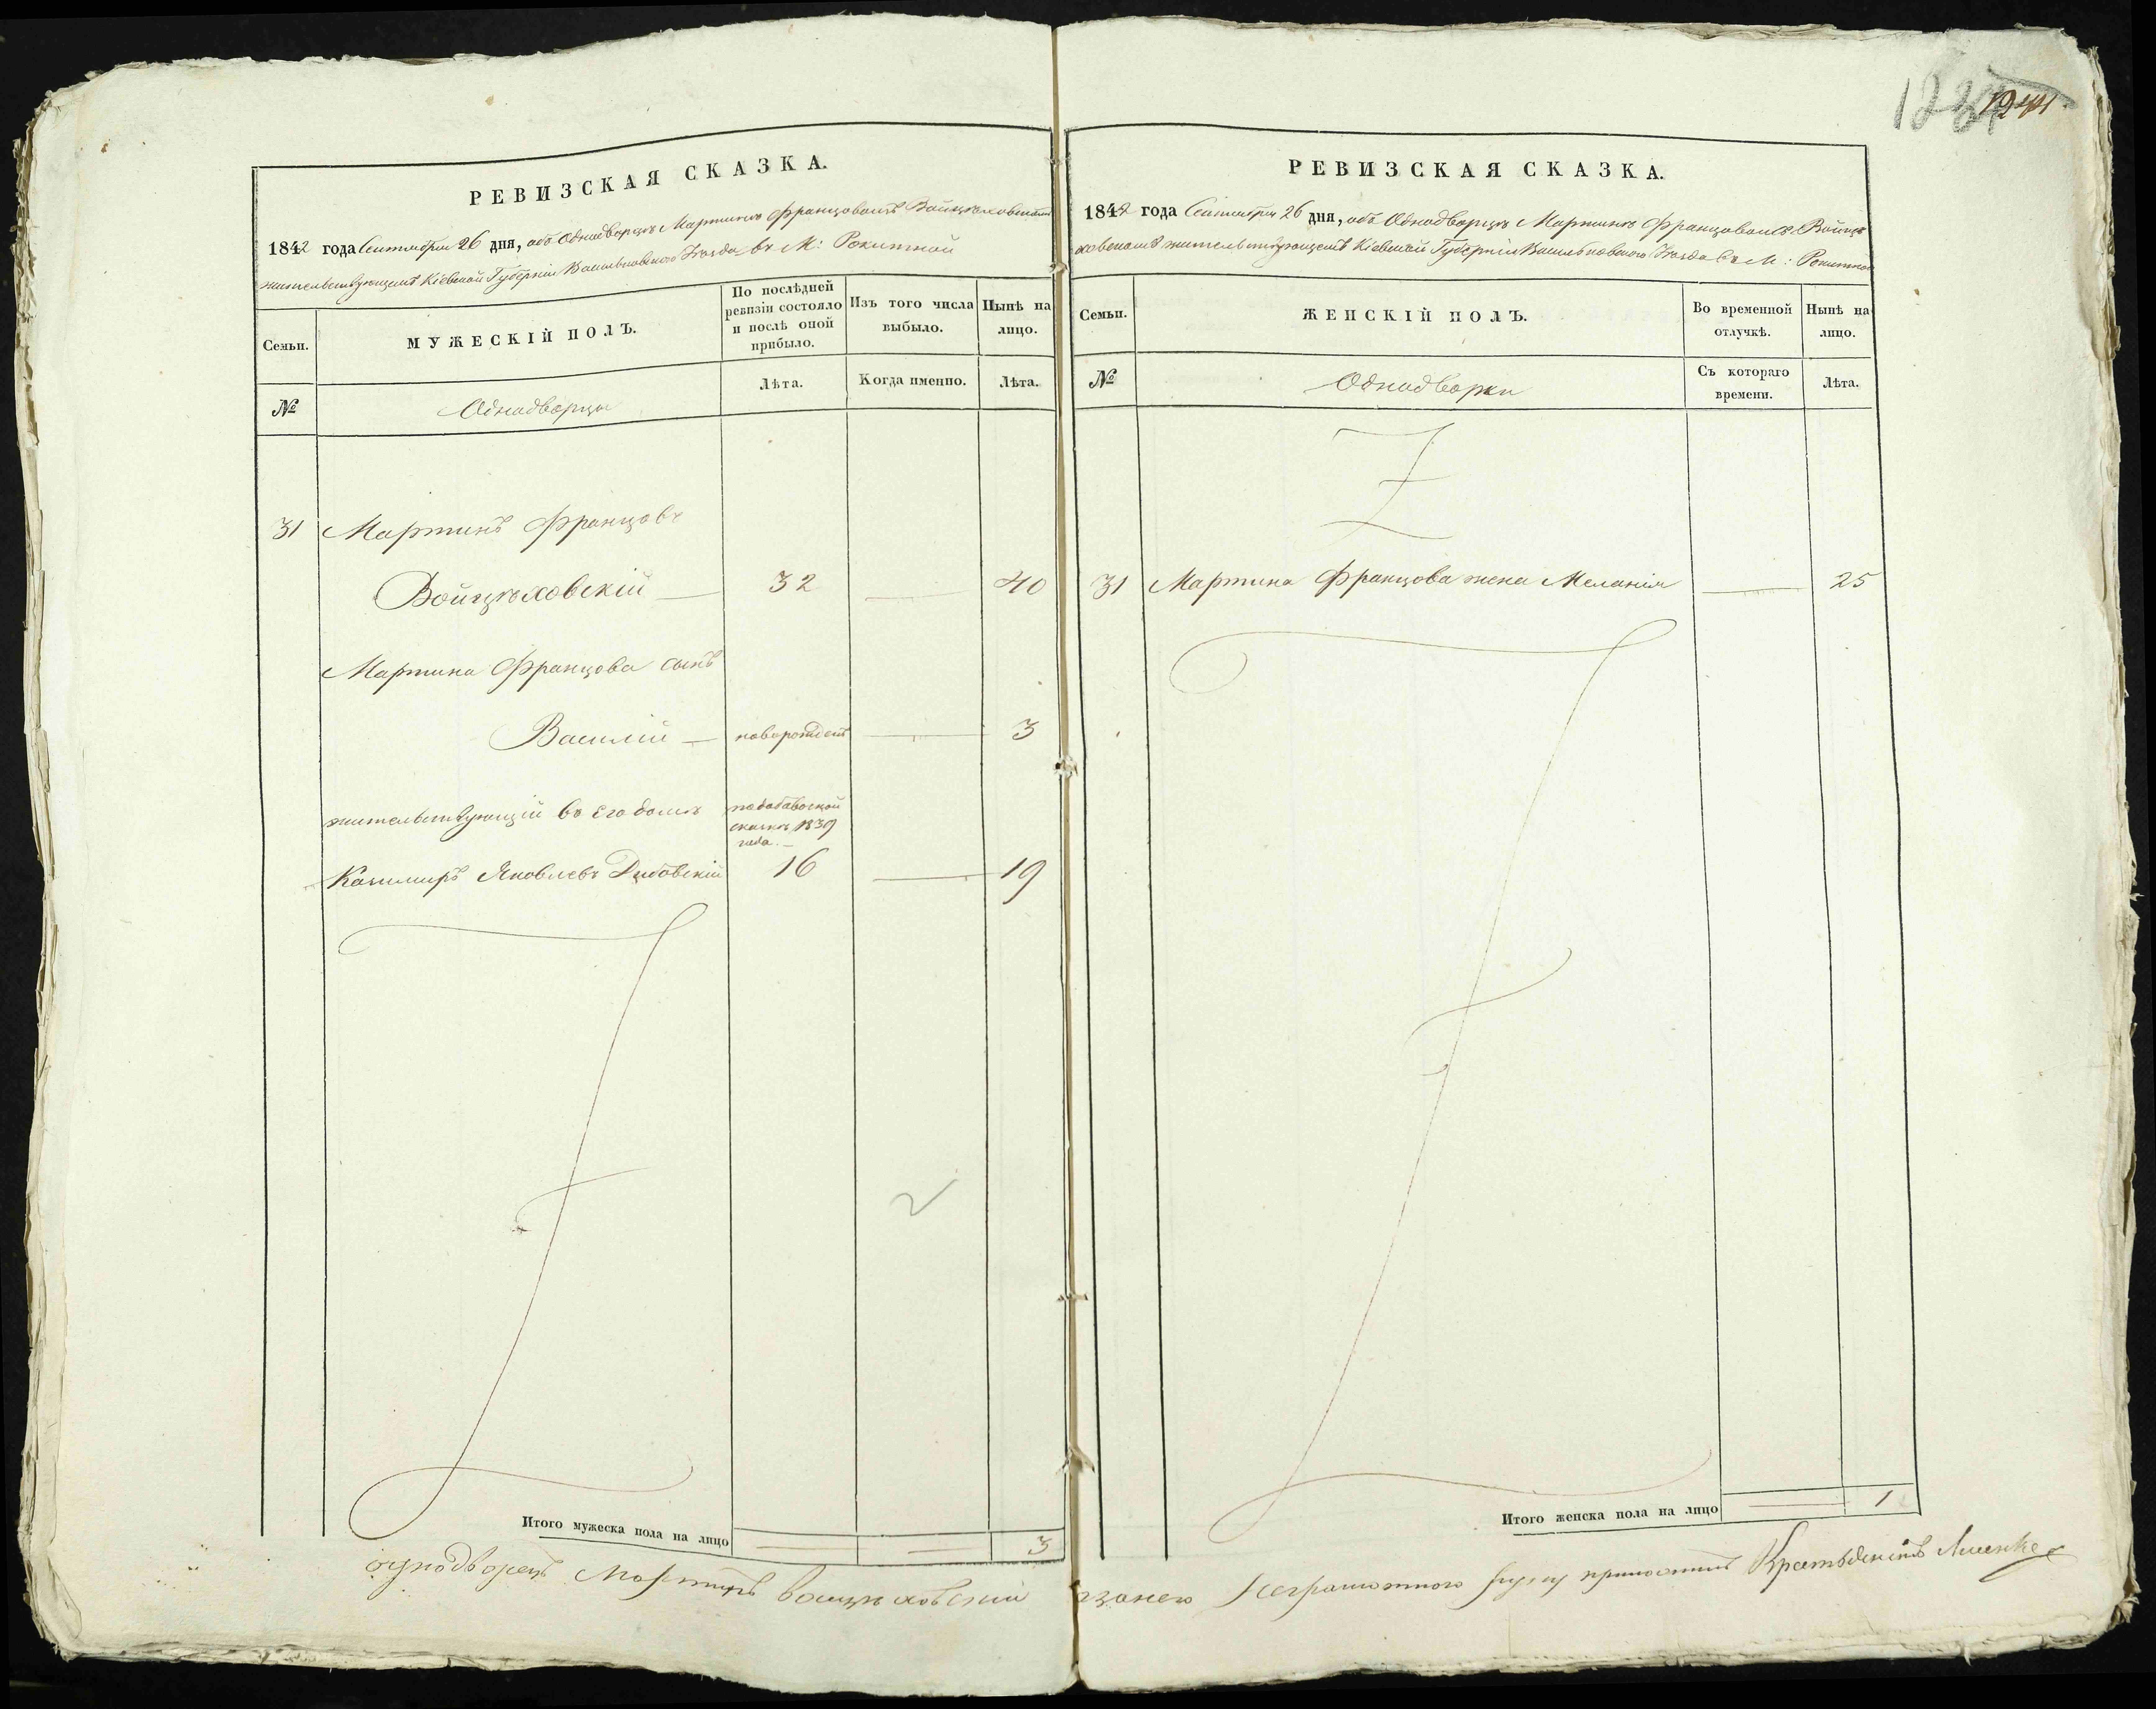 РЕВИЗСКАЯ СКАЗКА.
1842 года Сентября 26 дня, объ Однодворцѣ Мартинѣ Францовомъ Войцѣховскомъ
жительствующемъ Кіевской Губерніи Васильковского Уѣзда въ М: Рокитной
Семьи.
МУЖЕСКІЙ ПОЛЪ.
По послѣдней
ревизіи состояло
и послѣ оной
прибыло.
Изъ того числа
выбыло.
Нынѣ на
лицо.
№
Однодворцы
Лѣта.
Когда именно.
Лѣта.
31 Мартинъ Францовъ
Войцѣховскій — 32 — 40
Мартина Францова сынъ
Василій — новорожденъ — 3
жительствующій въ его домѣ
по добавочной
сказкѣ 1839
года.—
Казимиръ Яковлевъ Дыбовскій 16 — 19
2
Итого мужеска пола на лицо — — 3
однодворецъ Мартинъ Войцѣховский
1241
РЕВИЗСКАЯ СКАЗКА.
1842 года Сентября 26 дня, объ Однодворцѣ Мартинѣ Францовомъ Войцѣ
ховскомъ жительствующемъ Кіевской Губерніи Васильковского Уѣзда въ М: Рокитной
Семьи.
ЖЕНСКІЙ ПОЛЪ.
Во временной
отлучкѣ.
Нынѣ на
лицо.
№
Однодворки
Съ котораго
времени.
Лѣта.
31 Мартина Францова жена Меланія — 25
Итого женска пола на лицо — 1
неграмотного руку приложилъ